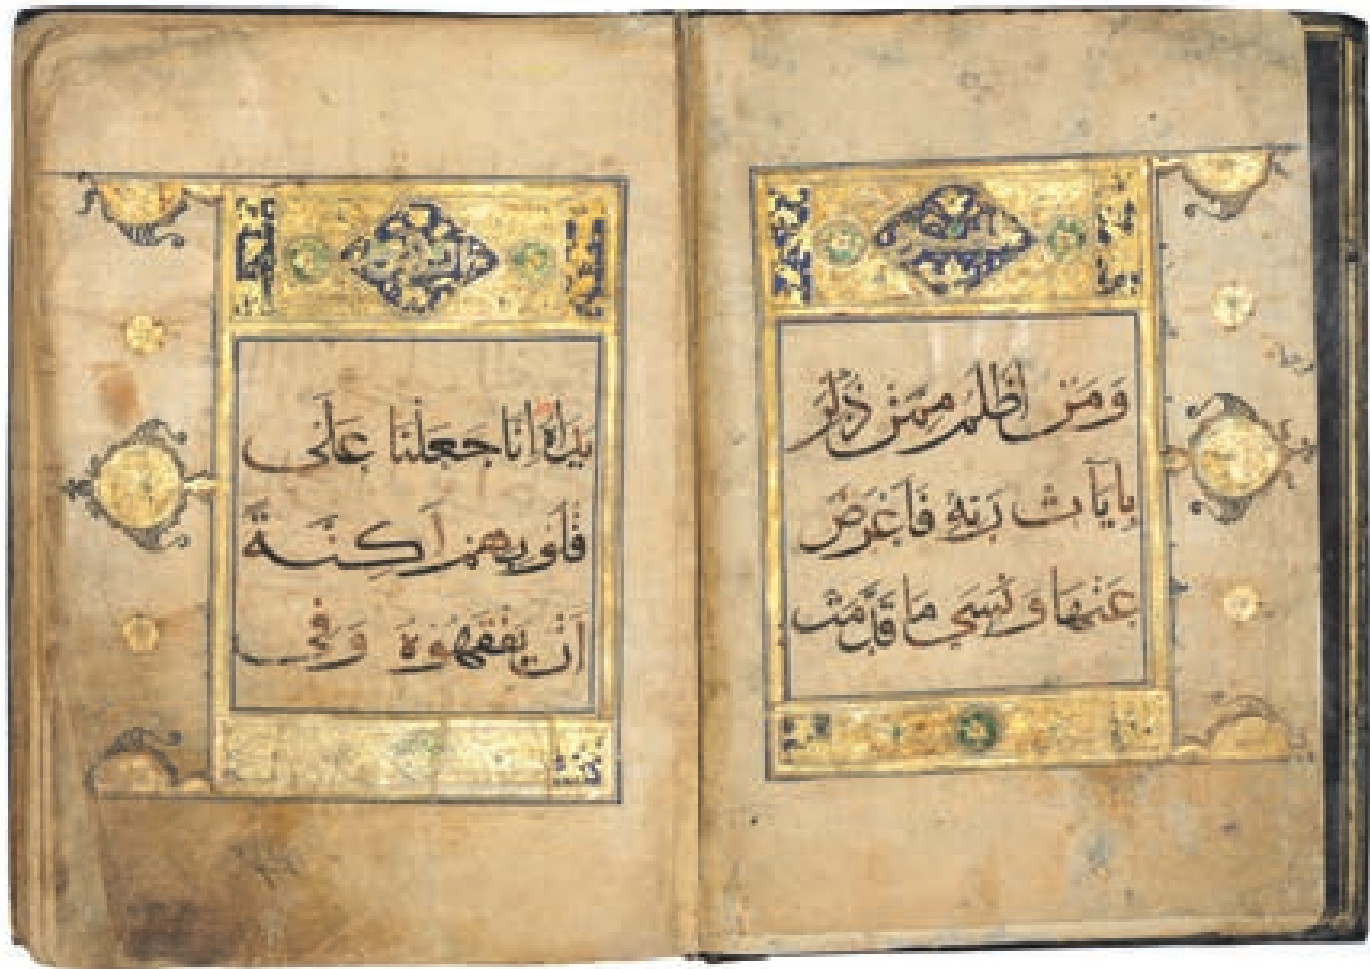 وَمَنْ أَظْلَمُ مِمَّنْ ذُكِّرَ
بِآيَاتِ رَبِّهِ فَأَعْرَضَ
عَنْهَا وَنَسِيَ مَا قَدَّمَتْ
يَدَاهُ إِنَّا جَعَلْنَا عَلَى
قُلُوبِهِمْ أَكِنَّةً
أَنْ يَفْقَهُوهُ وَفِي